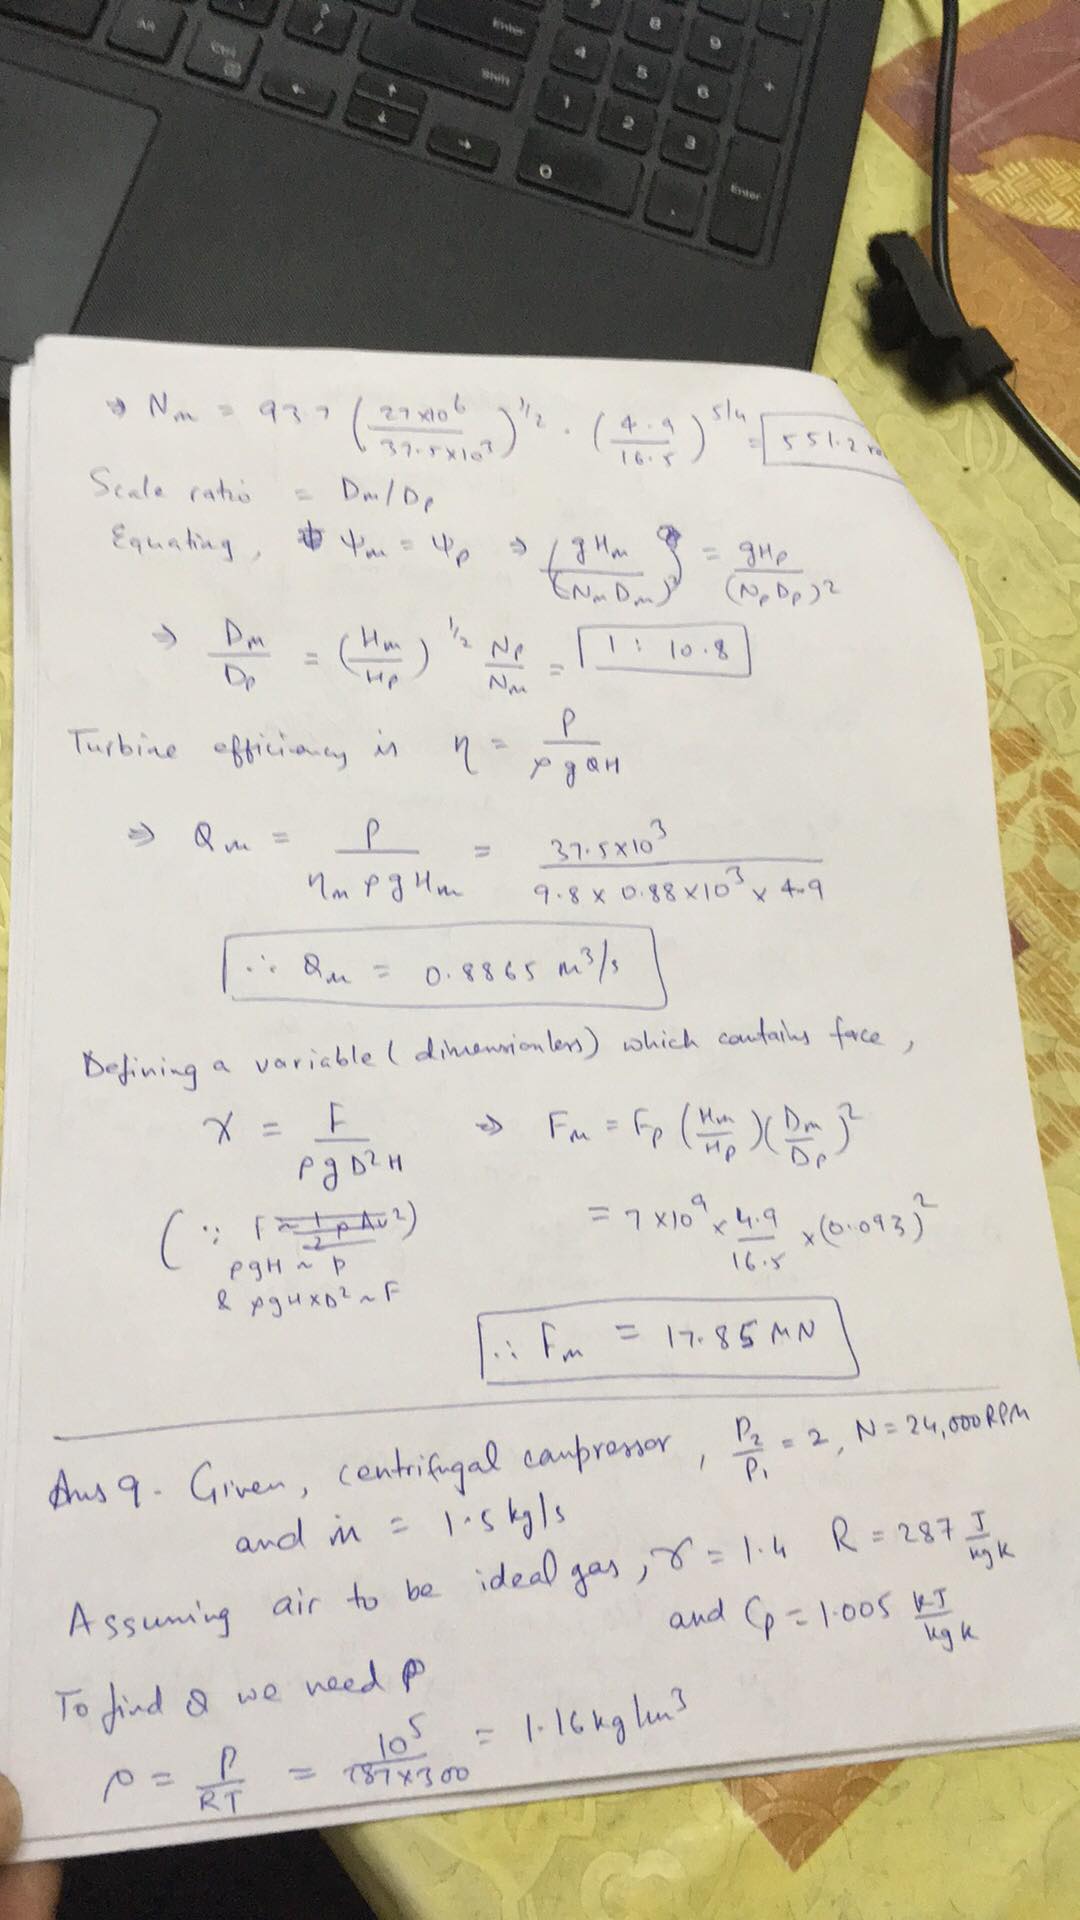 Alt
Ctrl
?
/
Enter
Shift
7
8
9
-
4
5
6
+
1
2
3
0
.
Enter
⇒ Nm = 93.7 (27×10⁶ / 37.5×10³)^1/2 · (4.9 / 16.5)^5/4 = 551.2
Scale ratio = Dm/Dp
Equating, Ψm = Ψp ⇒ (gHm / (NmDm)²) = gHp / (NpDp)²
⇒ Dm/Dp = (Hm/Hp)^1/2 Np/Nm = 1 : 10.8
Turbine efficiency is η = P / ρgQH
⇒ Qm = P / ηm ρgHm = 37.5×10³ / 9.8 × 0.88×10³ × 4.9
∴ Qm = 0.8865 m³/s
Defining a variable (dimensionless) which contains force,
γ = F / ρgD²H ⇒ Fm = Fp (Hm/Hp)(Dm/Dp)²
(∵ F ~ 1/2 ρAv²) = 7×10⁹ × 4.9/16.5 × (0.093)²
ρgH ~ P
& ρgH×D² ~ F
∴ Fm = 17.85 MN
Ans 9. Given, centrifugal compressor, P₂/P₁ = 2, N = 24,000 RPM
and ṁ = 1.5 kg/s
Assuming air to be ideal gas, γ = 1.4 R = 287 J/kgK
and Cp = 1.005 kJ/kgK
To find Q we need ρ
ρ = P/RT = 10⁵ / 287×300 = 1.16 kg/m³